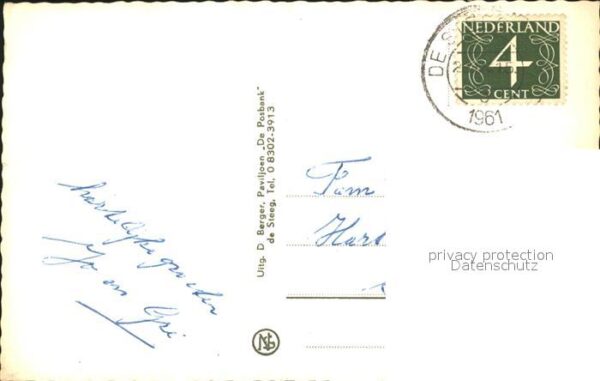 NEDERLAND
4
CENT
DE S
1961
Uitg. D Berger, Paviljoen „De Posbank"
de Steeg, Tel. 0 8302-3913
Fam
Hars
hartelijke groeten
Jo en Gré
privacy protection
Datenschutz